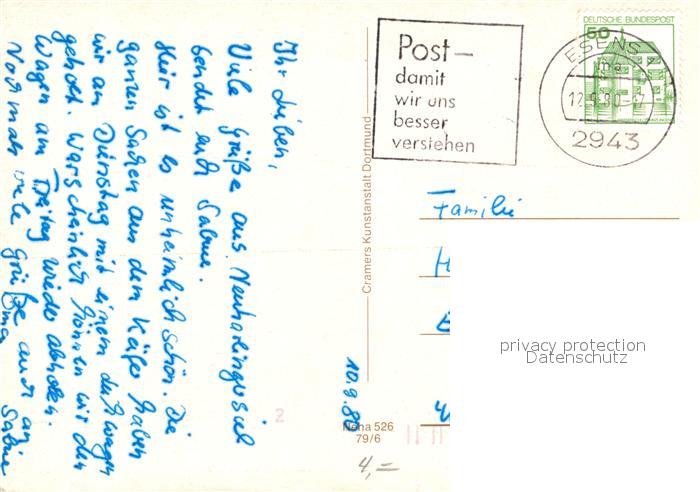 Ihr Lieben,
Viele Grüße aus Neuharlingersiel
sendet euch Sabine.
Hier ist es unheimlich schön. Die
ganzen Sachen aus dem Käfer haben
wir am Dienstag mit einem
geholt. Warscheinlich können wir den
Wagen am Freitag wieder abholen.
Nochmals viele Grüße auch an
Oma Sabine
10.9.80
Cramers Kunstanstalt Dortmund
Post –
damit
wir uns
besser
verstehen
DEUTSCHE BUNDESPOST
50
ESENS
12.9.80-17
2943
Familie
privacy protection
Datenschutz
2
Neha 526
79/6
4,=